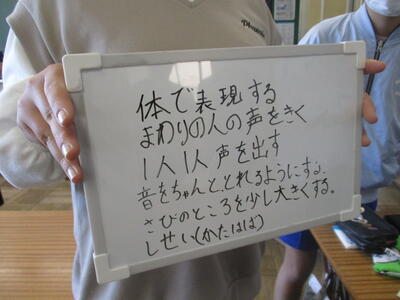 体で表現する
まわりの人の声をきく
1人1人声を出す
音をちゃんととれるようにする.
さびのところを少し大きくする.
しせい(かたはば)